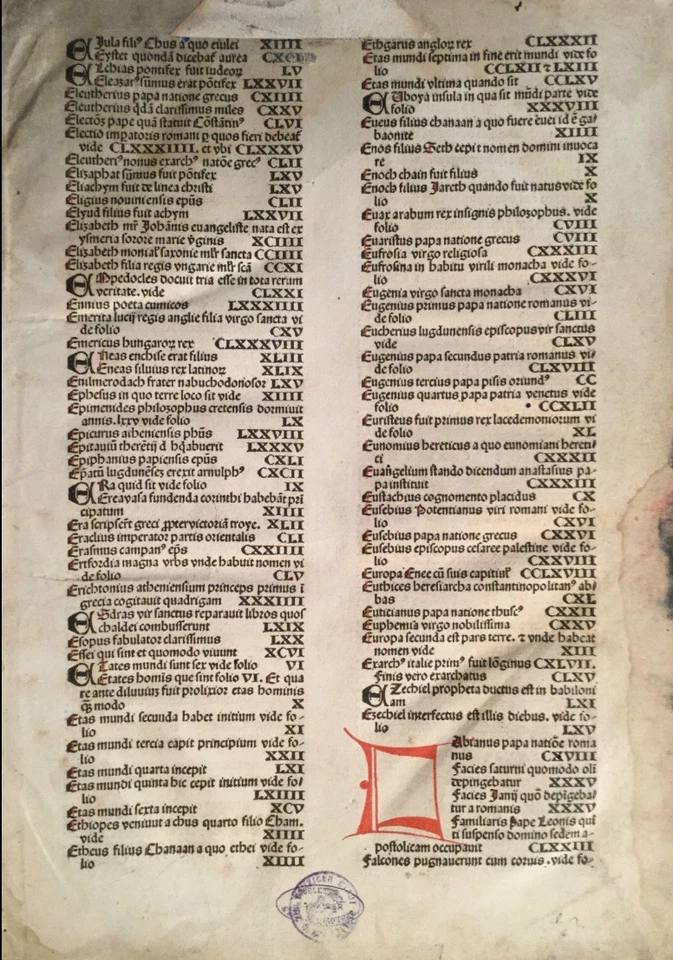 EJula fili⁹ Chus a quo eiulei XIIII
Eyster quondā dicebaƭ aurea
Echias pontifex fuit iudeoꝝ LV
Eleazar⁹ sūmus erat pōtifex LXXVII
Eleutherius papa natione grecus CXIIII
Eleutherius q̄dā clarissimus miles CXXV
Electoꝝ pape quā statuit Cōstātin⁹ CLVI
Electio imṗatoris romani ꝑ quos fieri debeaƭ
vide CLXXXIIII. et vbi CLXXXV
Eleutheri⁹ nonus exarch⁹ natōe grec⁹ CLII
Elizaphat sūmus fuit pōtifex LXV
Eliachym fuit de linea christi LXV
Eligius nouinensis ep̄us CLII
Elyud filius fuit achym LXXVII
Elizabeth mr̄ Johānis euangeliste nata est ex
ysmeria sorore marie v̄ginis XCIIII
Elizabeth monial⁹ saxonie ml̄r sancta CCIIII
Elizabeth filia regis vngarie ml̄r scā CCXI
EMpedocles docuit tria esse in tota rerum
veritate. vide CLXXI
Ennius poeta cumicos LXXXIIII
Emerita lucij regis anglie filia virgo sancta vi
de folio CXV
Emericus hungaroꝝ rex CLXXXVIII
Eneas enchise erat filius XLIII
Eneas siluius rex latinoꝝ XLIX
Enilmerodach frater nabuchodonosor LXV
Ephesus in quo terre loco sit vide XIIII
Epimenides philosophus cretensis dormiuit
annis. lxxv vide folio LX
Epicurus atheniensis ph̄us LXXVIII
Epitauiū therētij d h̄q̄abuerit LXXXV
Epiphanius papiensis ep̄us CXLI
Ep̄atū lugdunēses erexit arnulph⁹ CXCII
ERa quid sit vide folio IX
Ereavasa fundenda corinthi habebāƭ pri
cipatum XIIII
Era scripserƭ greci ꝓpter victoriā troye. XLII
Eraclius imperator partis orientalis CLI
Erasmus campan⁹ ep̄s CXXIIII
Ertfordia magna vrbs vnde habuit nomen vi
de folio CLV
Erichtonius atheniensium princeps primus ī
grecia cogitauit quadrigam XXXIIII
ESdras vir sanctus reparauit libros quos
chaldei combusserunt LXIX
Esopus fabulator clarissimus LXX
Essei qui sint et quomodo viuunt XCVI
ETates mundi sunt sex vide folio VI
Etates homis que sint folio VI. Et qua
re ante diluuiū fuit prolixior etas hominis
q̄ꝫ modo X
Etas mundi secunda habet initium vide fo-
lio XI
Etas mundi tercia capit principium vide fo-
lio XXII
Etas mundi quarta incepit LXI
Etas mundi quinta hic cepit initium vide fo/
lio LXIIII
Etas mundi sexta incepit XCV
Ethiopes veniunt a chus quarto filio Cham.
vide XIIII
Etheus filius Chanaan a quo ethei vide fo-
lio XIIII
Ethgarus angloꝝ rex CLXXXII
Etas mundi septima in fine erit mundi vide fo
lio CCLXII ⁊ LXIII
Etas mundi vltima quando sit CCLXV
EUboya insula in qua sit mūdi parte vide
folio XXXVIII
Eueus filius chanaan a quo fuere euei id ē ga/
baonite XIIII
Enos filius Seth cepit nomen domini inuoca
re IX
Enoch chain fuit filius X
Enoch filius Jareth quando fuit natus vide fo
lio X
Euax arabum rex insignis philosophus. vide
folio CVIII
Euaristus papa natione grecus CVIII
Eufrosia virgo religiosa CXXXIII
Eufrosina in habitu virili monacha vide fo-
lio CXXXVI
Eugenia virgo sancta monacha CXVI
Eugenius primus papa natione romanus vi-
de folio CLIII
Eucherius lugdunensis episcopus vir sanctus
vide CLXV
Eugenius papa secundus patria romanus vi/
de folio CLXVIII
Eugenius tercius papa pisis oriund⁹ CC
Eugenius quartus papa patria venetus vide
folio CCXLII
Euristeus fuit primus rex lacedemoniorum vi
de folio XL
Eunomius hereticus a quo eunomiani hereti/
ci CXXXII
Euāgelium stando dicendum anastasius pa-
pa instituit CXXXIII
Eustachius cognomento placidus CX
Eusebius Potentianus viri romani vide fo-
lio CXVI
Eusebius papa natione grecus CXXVI
Eusebius episcopus cesaree palestine vide fo-
lio CXXVIII
Europa Enee cū suis capitiuƭ CCLXVIII
Euthices heresiarcha constantinopolitan⁹ ab/
bas CXL
Euticianus papa natione thusc⁹ CXXII
Euphemia virgo nobilissima CXXV
Europa secunda est pars terre. ⁊ vnde habeat
nomen vide XIII
Exarch⁹ italie prim⁹ fuit lōginus CXLVII.
Finis vero exarchatus CLXV
EZechiel propheta ductus est in babiloni
am LXI
Ezechiel interfectus est illis diebus. vide fo-
lio LXV
FAbianus papa natiōe roma
nus CXVIII
Facies saturni quomodo oli
depingebatur XXXV
Facies Janij quō depigeba/
tur a romanis XXXV
Familiaris Pape Leonis qui
ti suspenso domino sedem a-
postolicam occupauit CLXXIII
Falcones pugnauerunt cum coruis. vide fo-